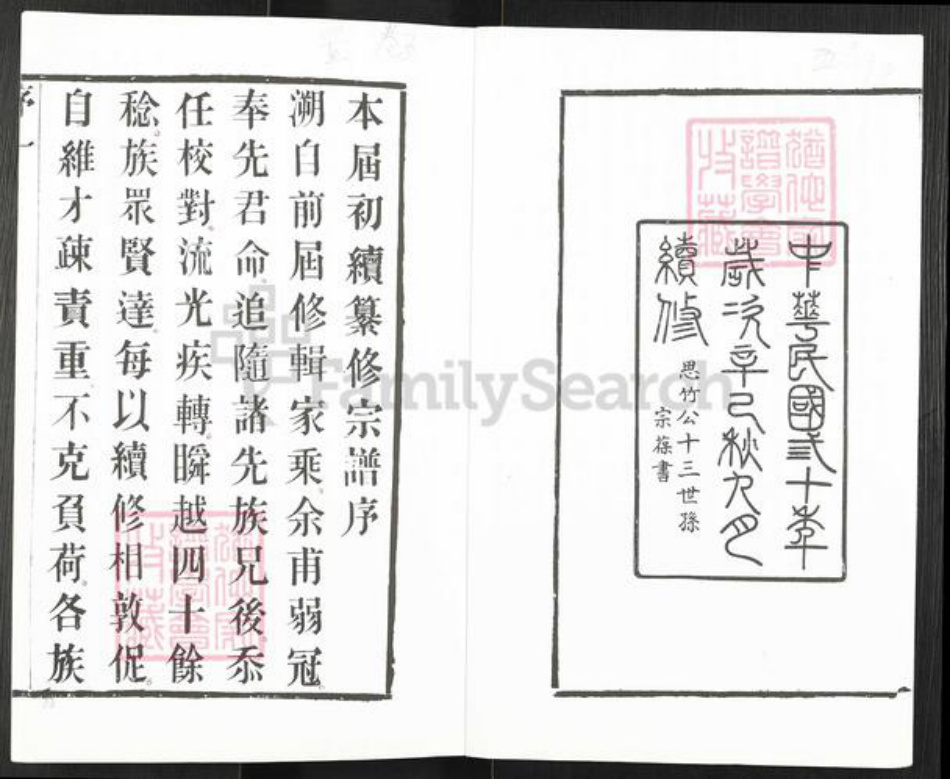 中華民國弍十年
歲次辛巳秋九月
續修
思竹公十三世孫
宗葆書
本屆初續纂修宗譜序
溯自前屆修輯家乘余甫弱冠
奉先君命追隨諸先族兄後忝
任校對流光疾轉瞬越四十餘
稔族眾賢達每以續修相敦促
自維才疎責重不克負荷各族
序一
FamilySearch